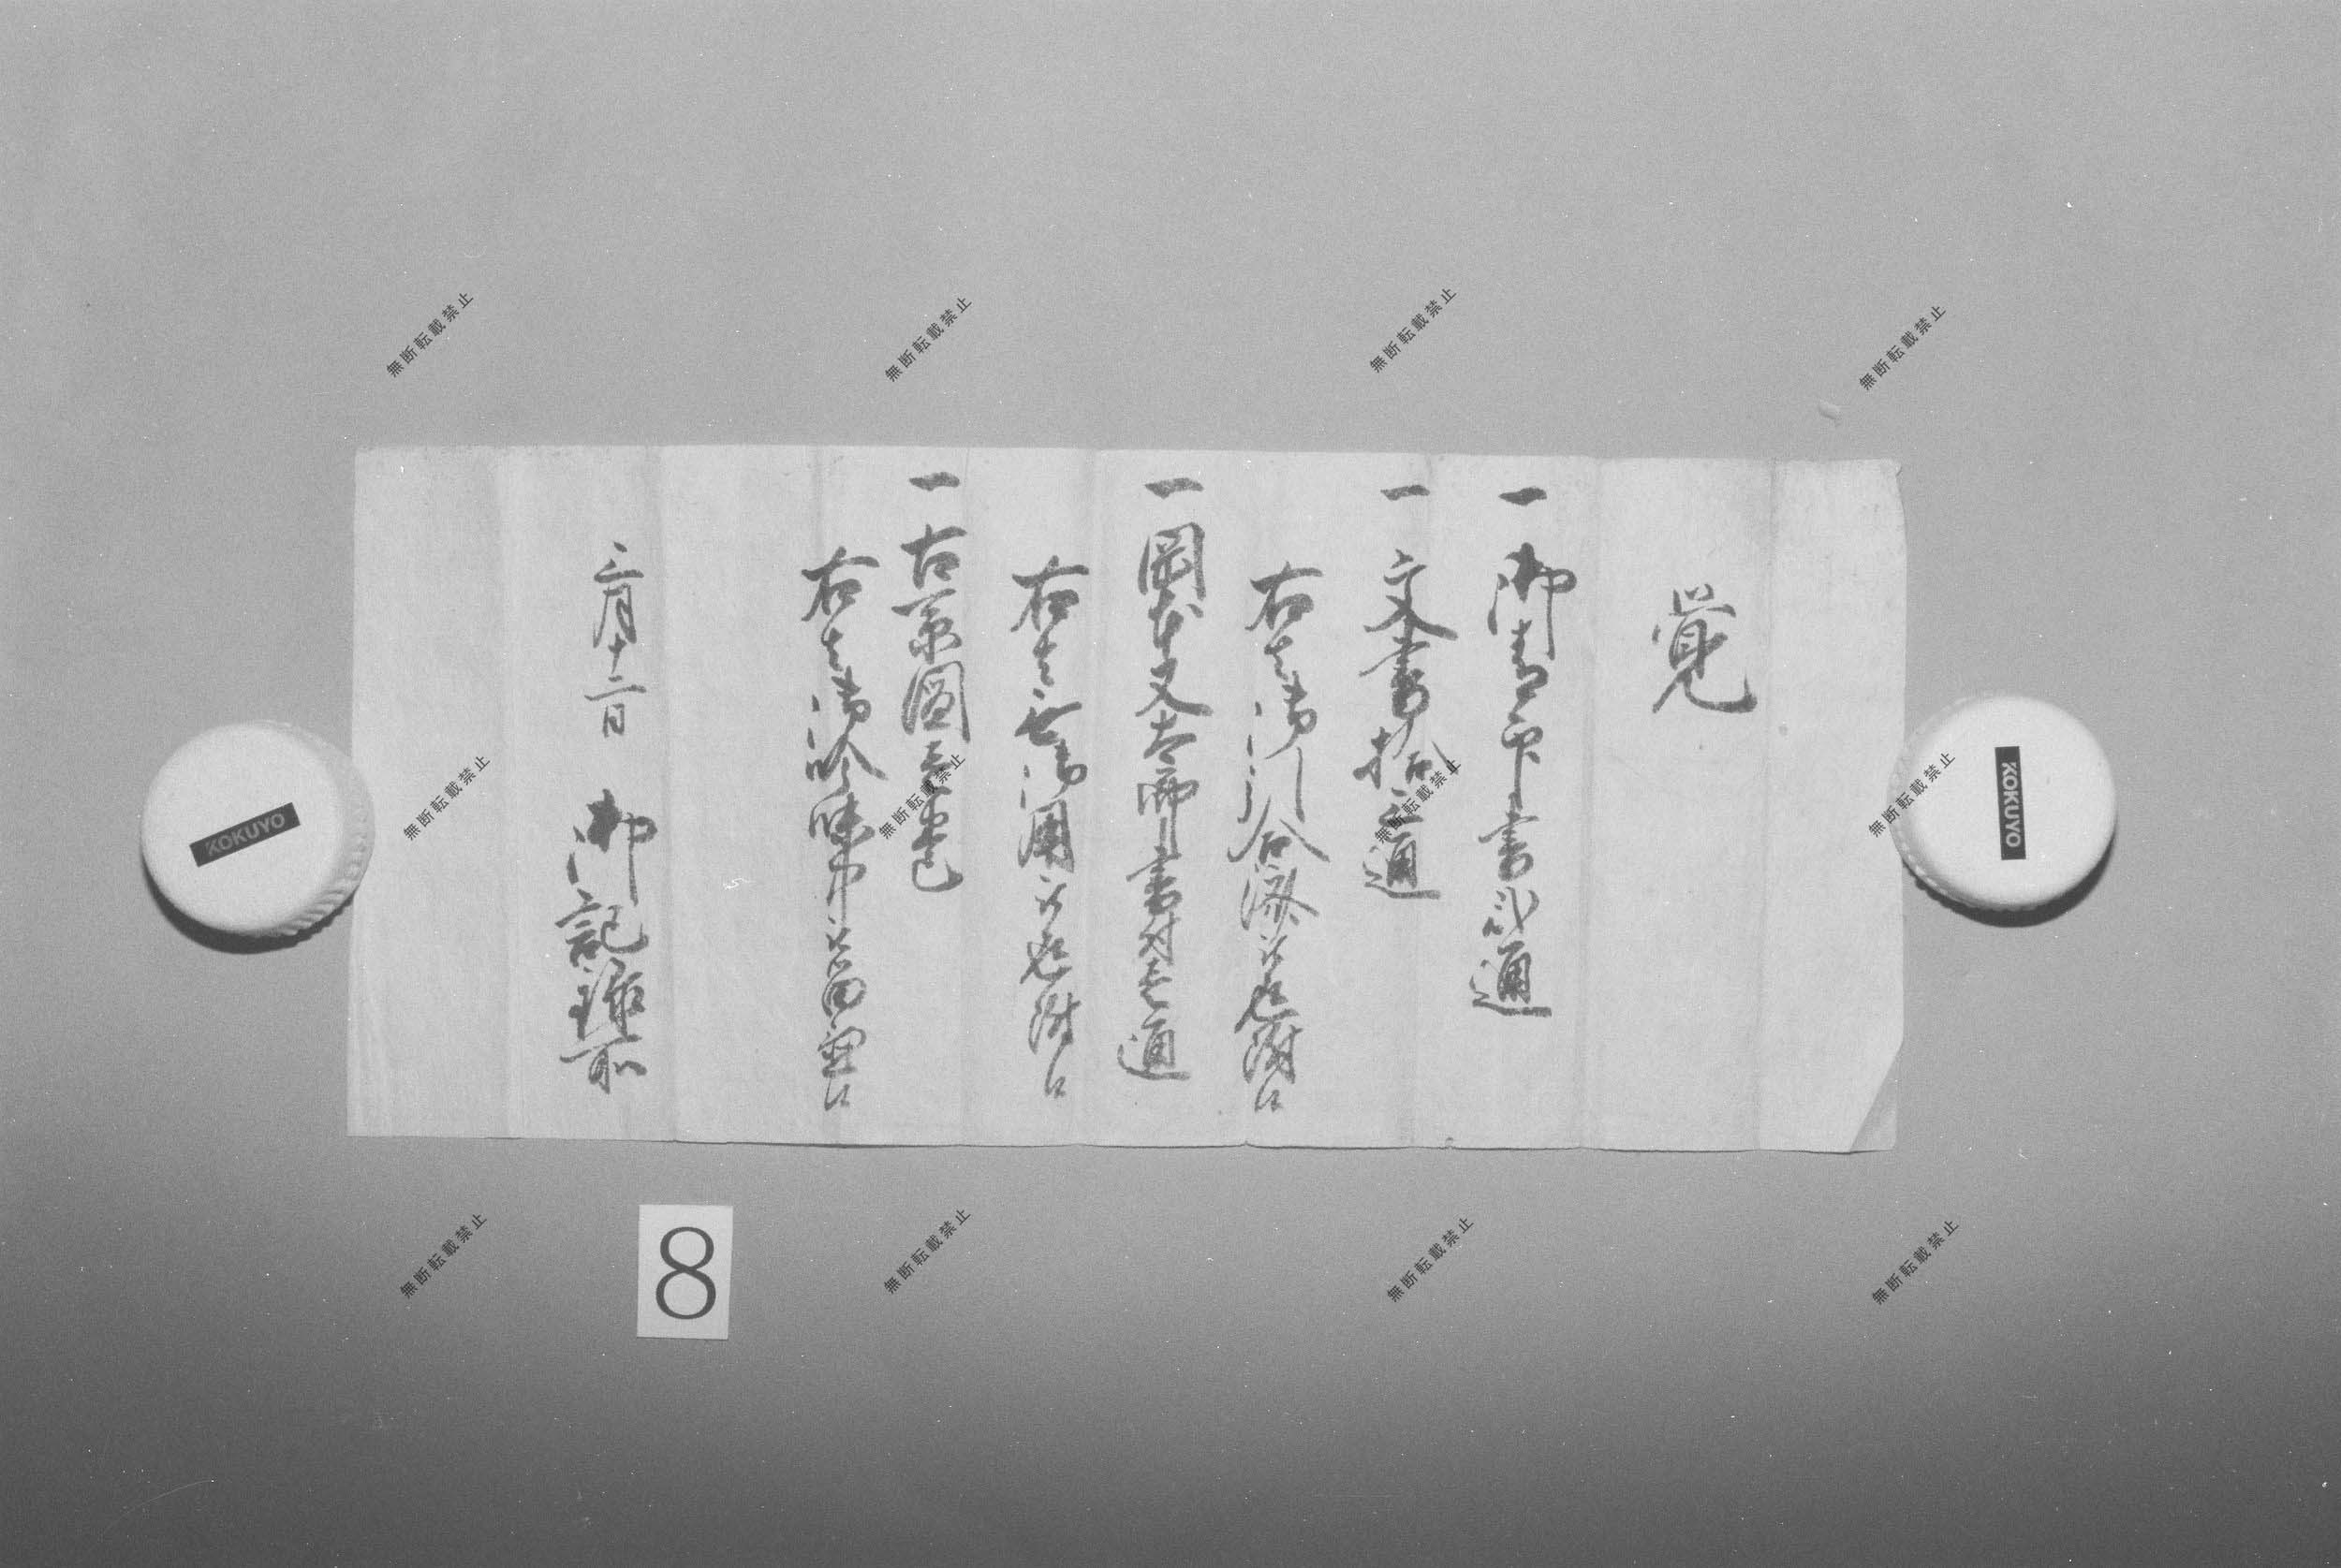 覚
一 御朱印書弐通
一 文書拾三通
右者御引合済ニ付被返附候
一 岡本又太郎書付壱通
右者無御用ニ付被返附候
一 古系図壱巻
右者御吟味中ニ付留置候
三月十二日 御記録所
8
KOKUYO
KOKUYO
無断転載禁止
無断転載禁止
無断転載禁止
無断転載禁止
無断転載禁止
無断転載禁止
無断転載禁止
無断転載禁止
無断転載禁止
無断転載禁止
無断転載禁止
無断転載禁止